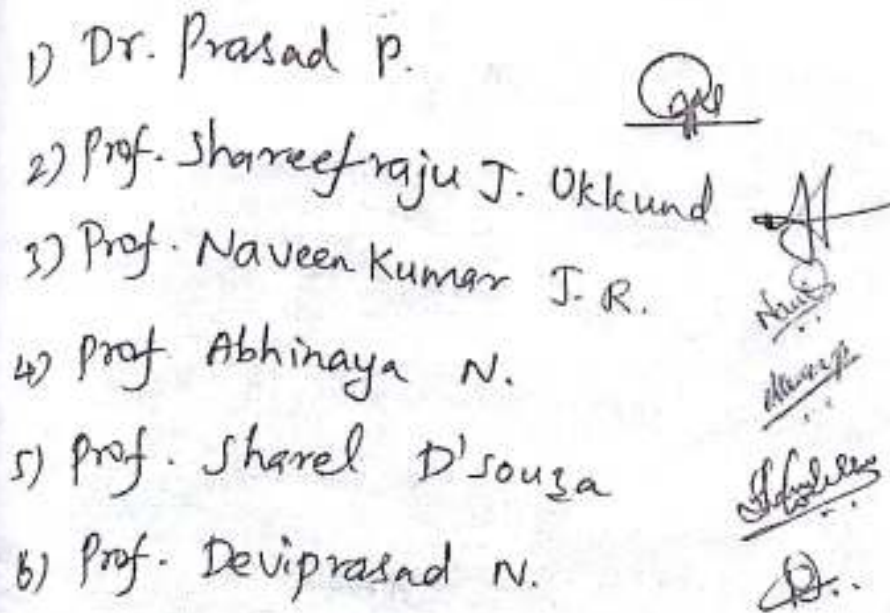 1) Dr. Prasad P.
2) Prof. Shareefraju J. Ukkund
3) Prof. Naveen Kumar J. R.
4) Prof. Abhinaya N.
5) Prof. Sharel D'souza
6) Prof. Deviprasad N.